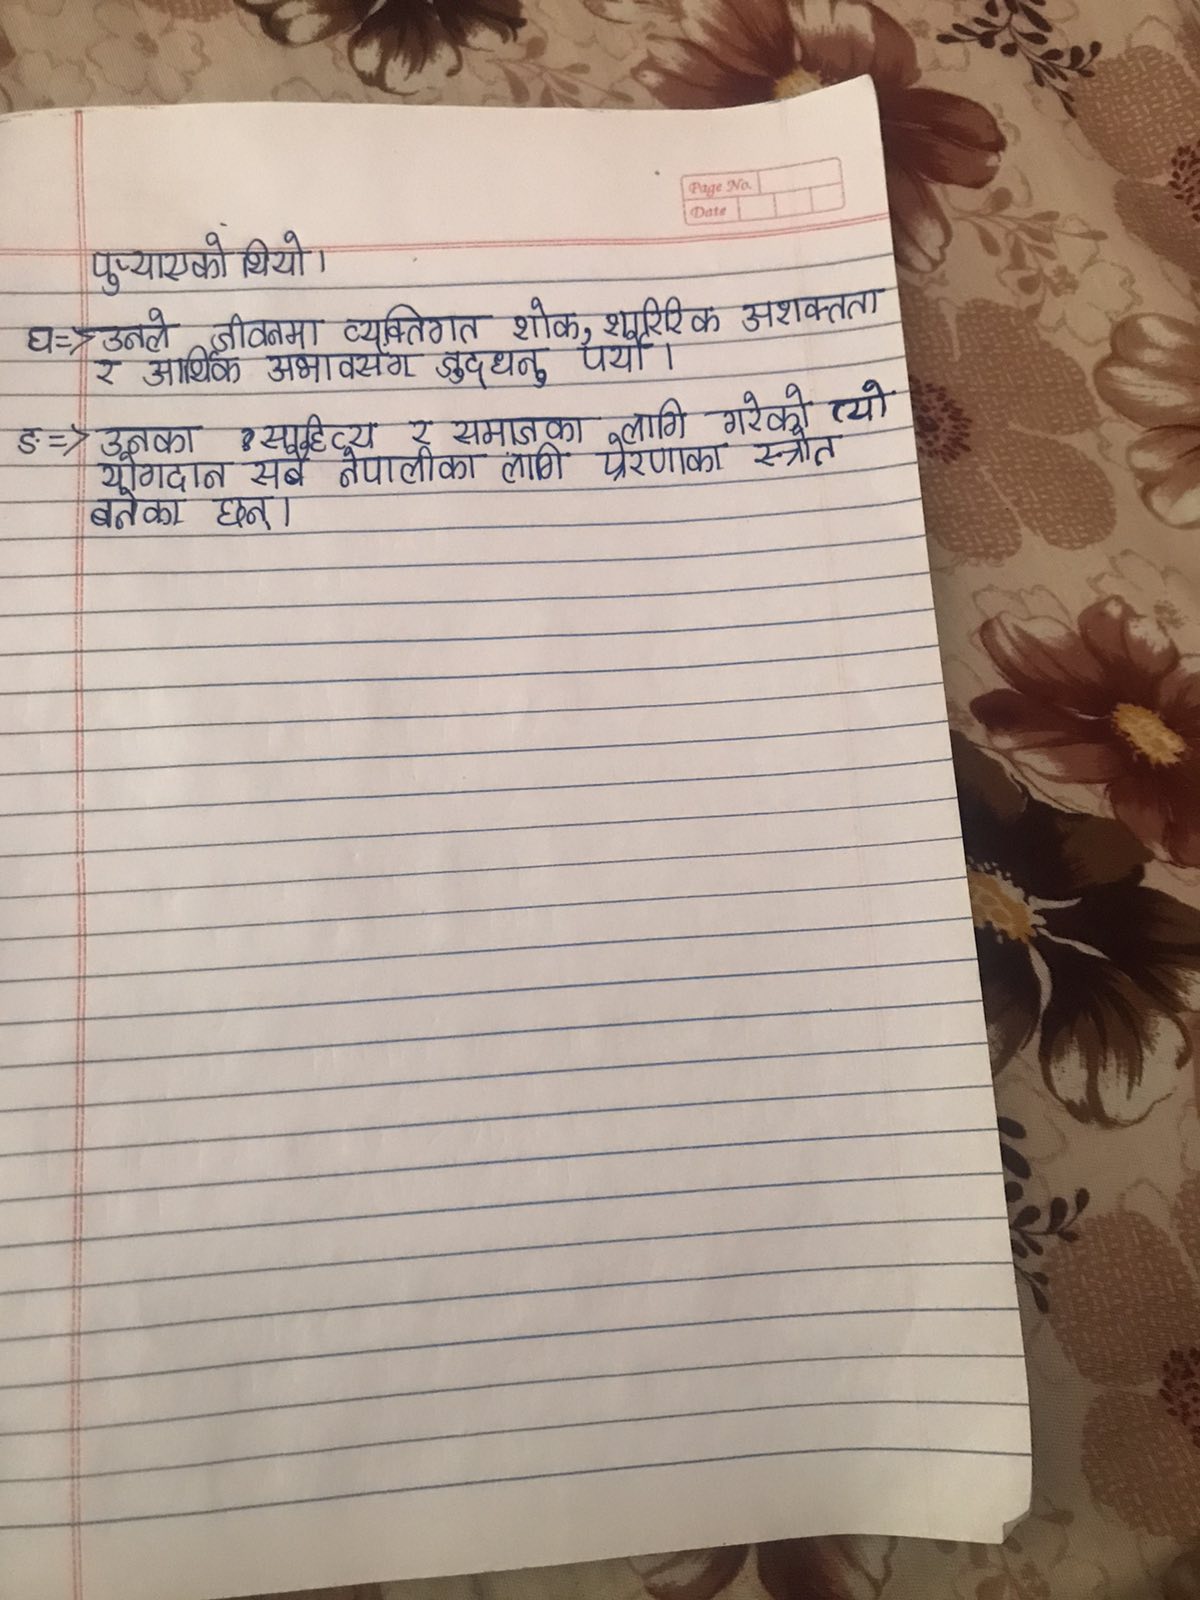 Page No.
Date
पुऱ्याएको थियो।
घ=> उनले जीवनमा व्यक्तिगत शोक, शारिरिक अशक्तता
र आर्थिक अभावसँग जुद्धनु पर्यो।
ङ=> उनका साहित्य र समाजका लागि गरेको त्यो
योगदान सबै नेपालीका लागि प्रेरणाका स्त्रोत
बनेका छन्।